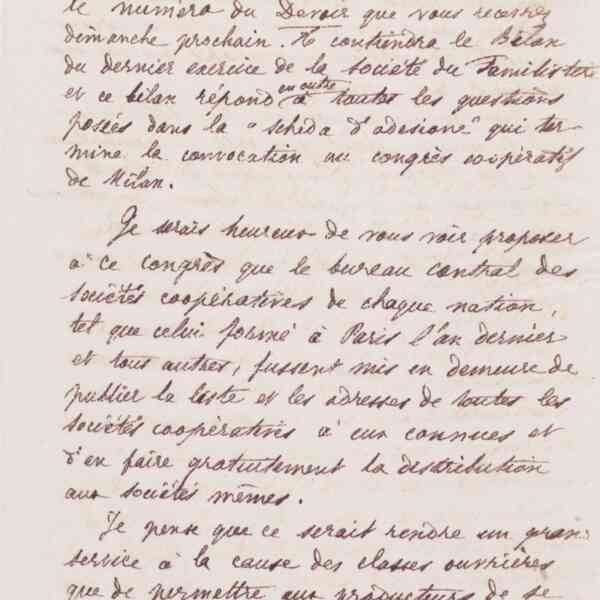 le numéro du Devoir que vous recevrez
dimanche prochain. Il contiendra le Bilan
du dernier exercice de la société du Familistère
et ce bilan répond en outre à toutes les questions
posées dans la "scheda d'adesione" qui ter-
mine la convocation au congrès coopératif
de Milan.
Je serais heureux de vous voir proposer
à ce congrès que le bureau central des
sociétés coopératives de chaque nation,
tel que celui formé à Paris l'an dernier
et tous autres, fussent mis en demeure de
publier la liste et les adresses de toutes les
sociétés coopératives à eux connues et
d'en faire gratuitement la distribution
aux sociétés mêmes.
Je pense que ce serait rendre un gran
service à la cause des classes ouvrières
que de permettre aux producteurs de se